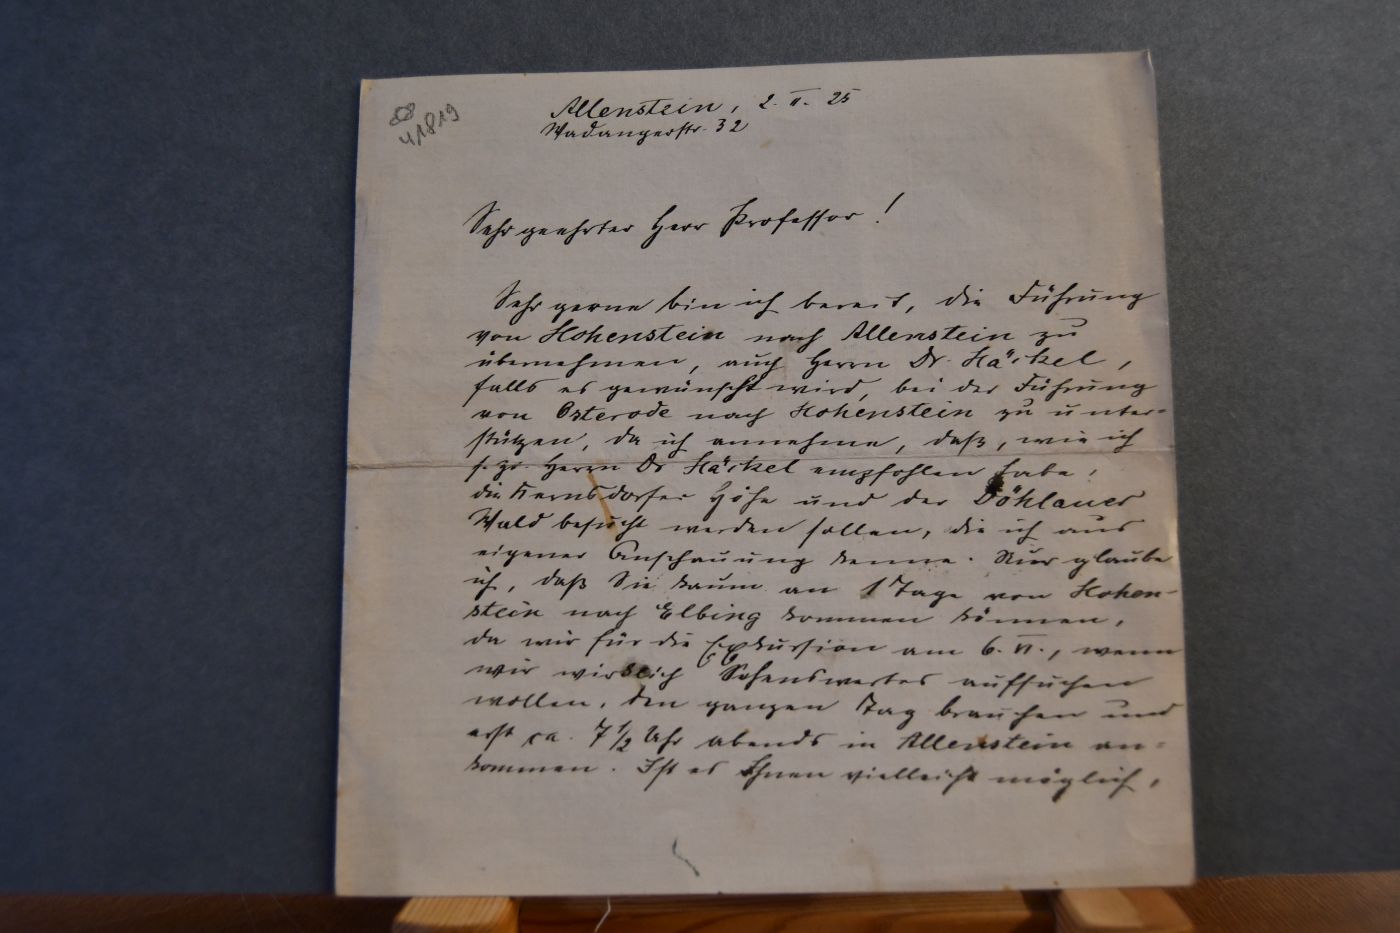 41819
Allenstein, 2. II. 25
Wadangerstr. 32
Sehr geehrter Herr Professor!
Sehr gerne bin ich bereit, die Führung
von Hohenstein nach Allenstein zu
übernehmen, auch Herrn Dr. Häckel,
falls es gewünscht wird, bei der Führung
von Osterode nach Hohenstein zu unter-
stützen, da ich annehme, daß, wie ich
s. Zt. Herrn Dr Häckel empfohlen habe,
die Kernsdorfer Höhe und der Döhlauer
Wald besucht werden sollen, die ich aus
eigener Anschauung kenne. Nur glaube
ich, daß Sie kaum an 1 Tage von Hohen-
stein nach Elbing kommen können,
da wir für die Exkursion am 6. VI., wenn
wir wirklich Sehenswertes aufsuchen
wollen, den ganzen Tag brauchen und
erst ca. 7 1/2 Uhr abends in Allenstein an-
kommen. Ist es Ihnen vielleicht möglich,